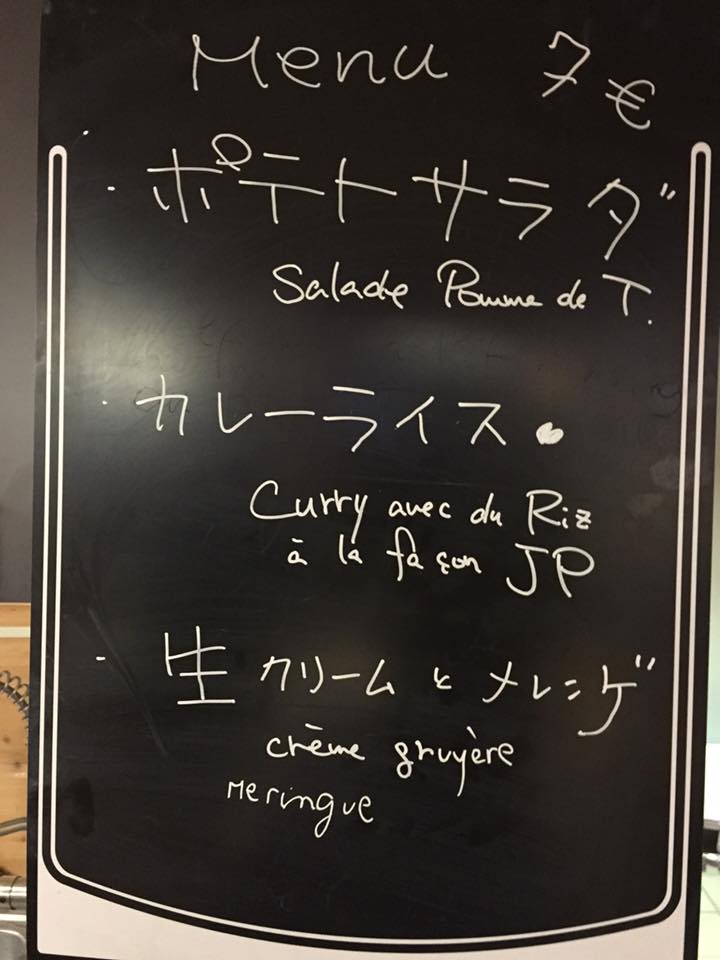 Menu 7 €
・ポテトサラダ
Salade Pomme de T.
・カレーライス
Curry avec du Riz
à la façon JP
・生クリームとメレンゲ
crème gruyère
Meringue